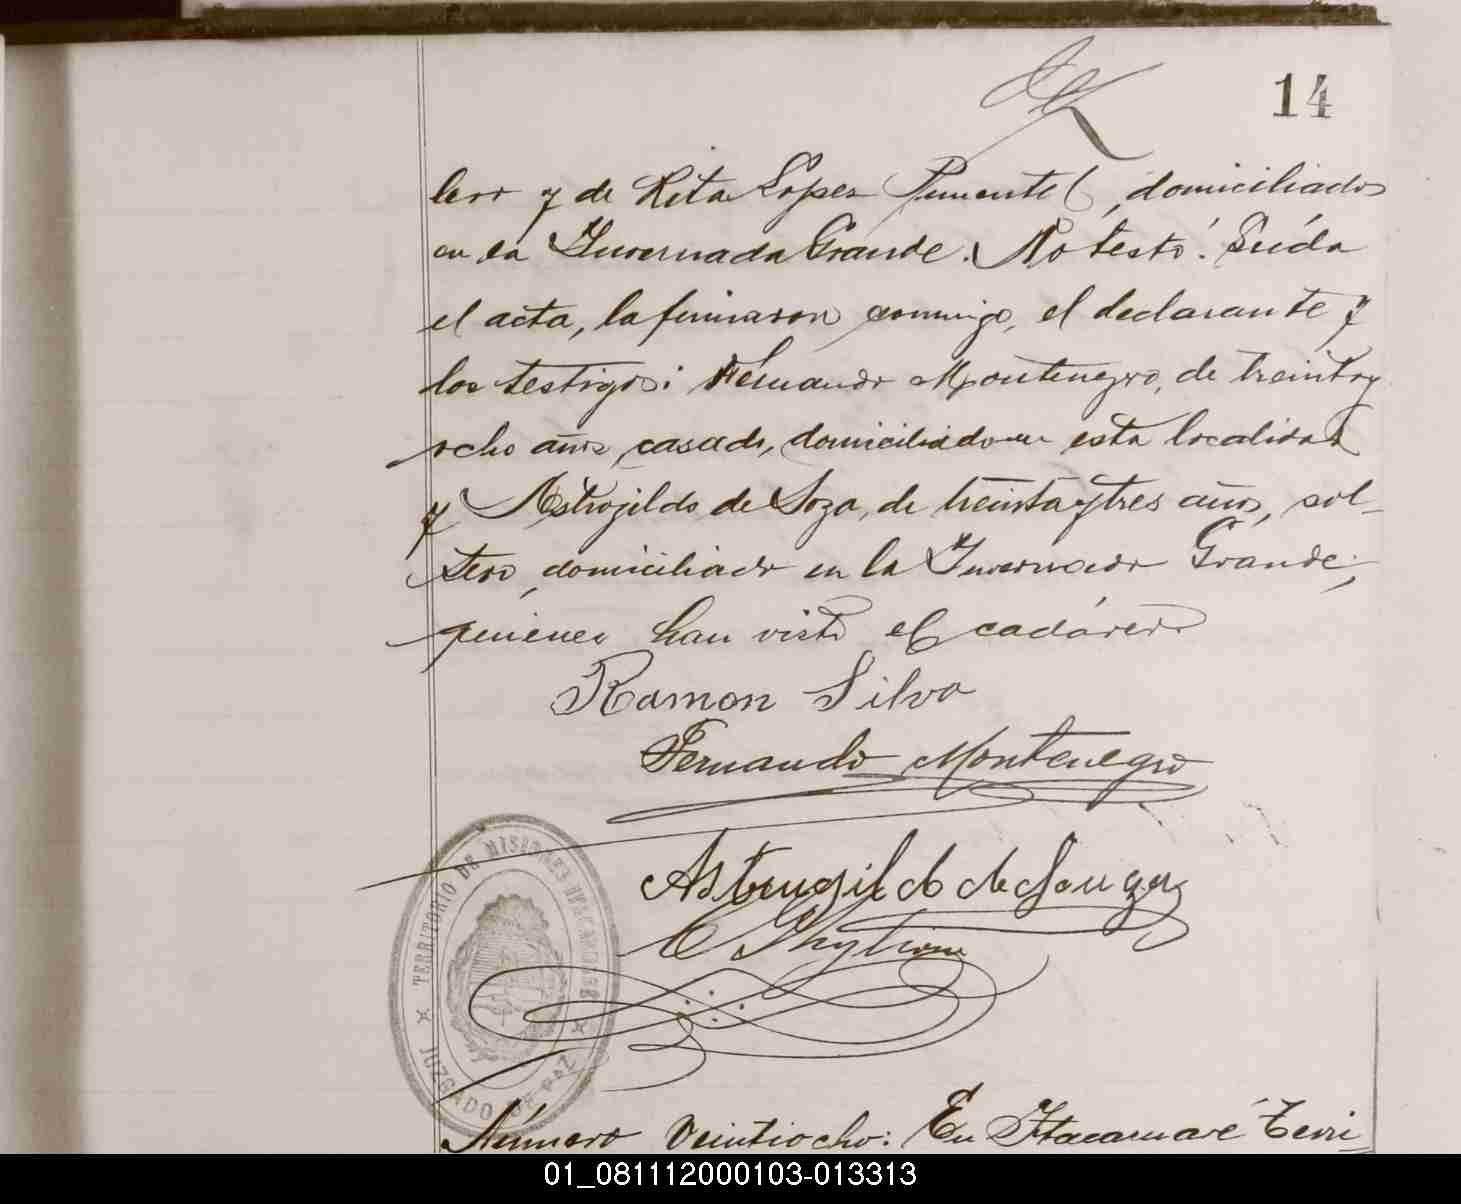 14
lero y de Rita Lopez Pimentel, domiciliados
en la Invernada Grande. No testó. Leída
el acta, la firmaron conmigo, el declarante y
los testigos: Fernando Montenegro, de treinta y
ocho años, casado, domiciliado en esta localidad
y Astrojildo de Soza, de treinta y tres años, sol-
tero, domiciliado en la Invernada Grande,
quienes han visto el cadáver
Ramon Silva
Fernando Montenegro
Astrugildo de Souza
TERRITORIO DE MISIONES
JUZGADO DE PAZ
Número veintiocho: En Itacaruaré Terri
01_081112000103-013313